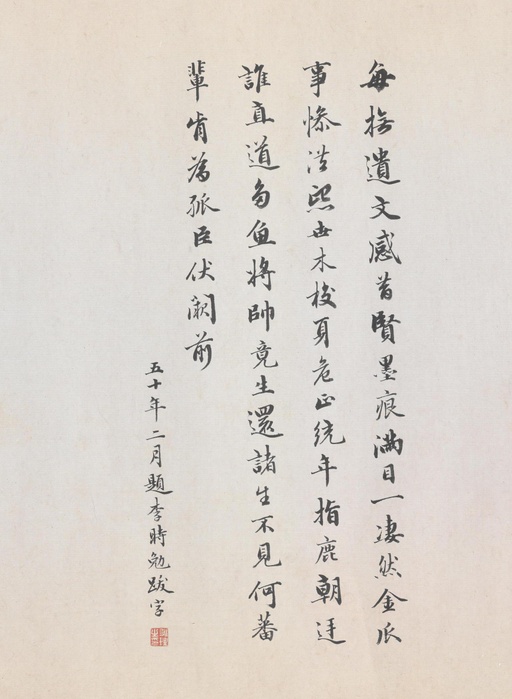 每撫遺文感昔賢墨痕滿目一淒然金瓜
事慘洪熙世木校身危正統年指鹿朝廷
誰直道多魚將帥竟生還諸生不見何蕃
輩肯為孤臣伏闕前
五十年二月題李時勉跋字